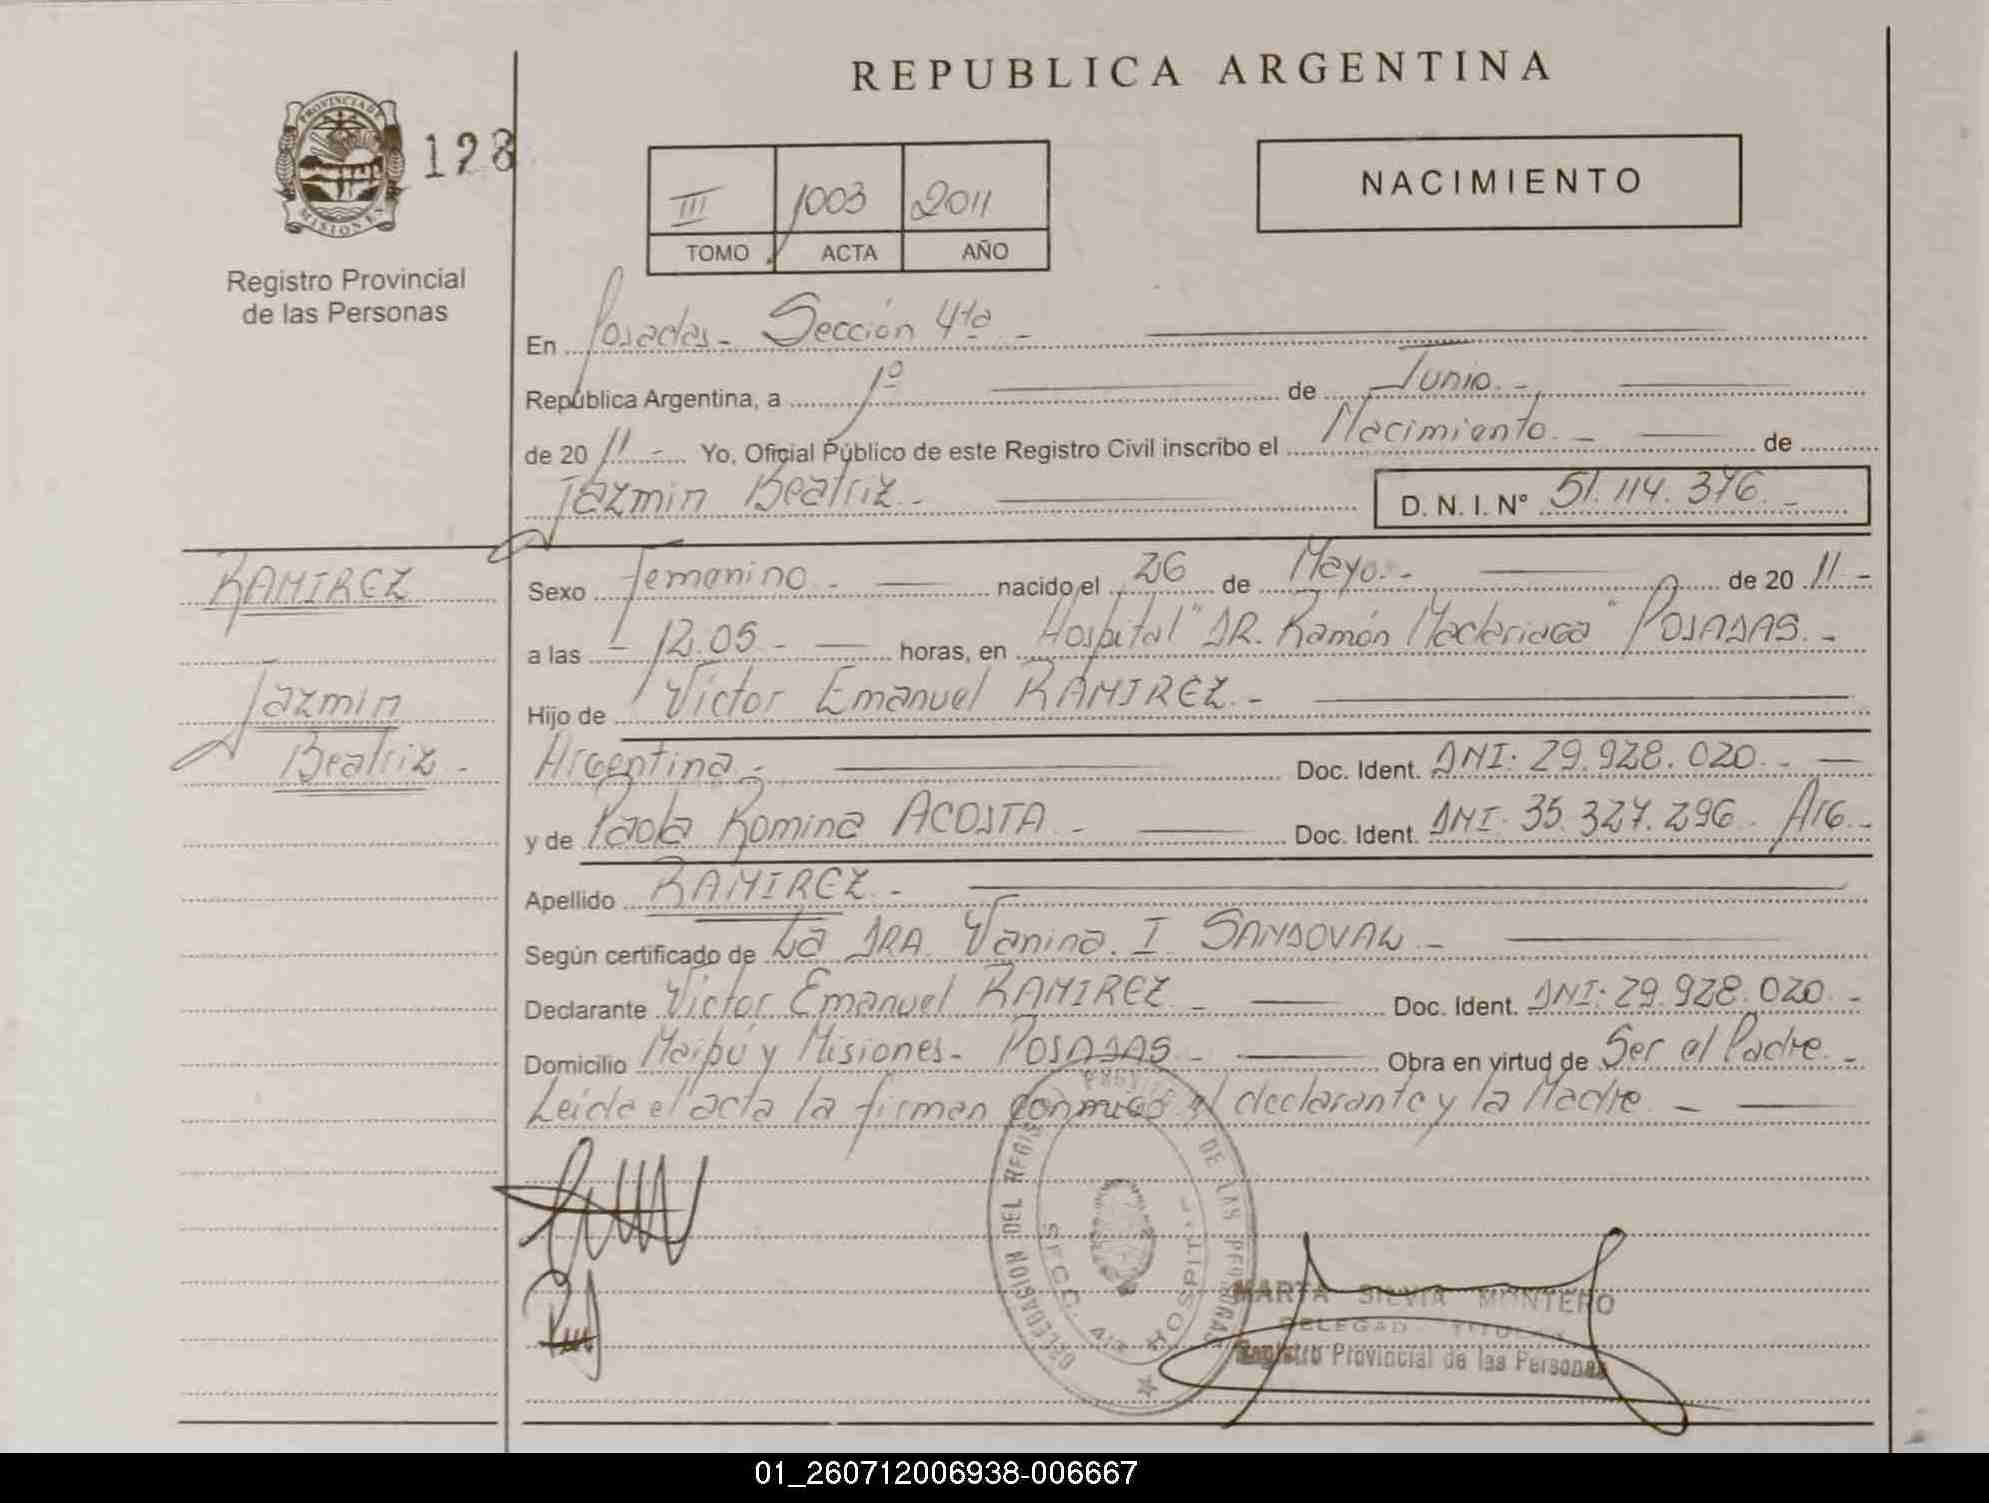 REPUBLICA ARGENTINA
PROVINCIA DE
MISIONES
128
Registro Provincial
de las Personas
III 1003 2011
TOMO ACTA AÑO
NACIMIENTO
En Posadas - Sección 4ta -
República Argentina, a 1º de Junio. -
de 20 11 - Yo, Oficial Público de este Registro Civil inscribo el Nacimiento. - de
Jazmin Beatriz. - D. N. I. Nº 51.114.376. -
RAMIREZ
Jazmin
Beatriz -
Sexo Femenino - nacido el 26 de Mayo. - de 20 11 -
a las - 12.05 - horas, en Hospital "DR. Ramón Madariaga" POSADAS. -
Hijo de Victor Emanuel RAMIREZ. -
Argentina - Doc. Ident. DNI: 29.928.020. -
y de Paola Romina ACOSTA - Doc. Ident. DNI. 35.327.296. ARG. -
Apellido RAMIREZ. -
Según certificado de La DRA. Vanina. I. SANDOVAL -
Declarante Victor Emanuel RAMIREZ - Doc. Ident. DNI: 29.928.020. -
Domicilio Maipú y Misiones - POSADAS - Obra en virtud de Ser el Padre. -
Leída el acta la firman conmigo el declarante y la Madre. -
DELEGACION DEL REGISTRO DE LAS PERSONAS
SECC. HOSPITAL
MARTA SILVIA MONTERO
DELEGADA TITULAR
Registro Provincial de las Personas
01_260712006938-006667